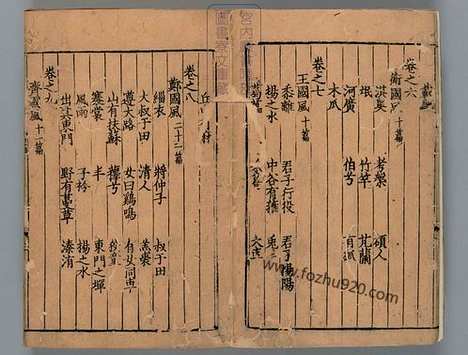 卷之六
衛國風十篇
淇奧 考槃 碩人
氓 竹竿 芄蘭
河廣 伯兮 有狐
木瓜
卷之七
王國風十篇
黍離 君子行役 君子陽陽
揚之水 中谷有蓷 兔
葛藟 大車
丘
卷之八
鄭國風二十一篇
緇衣 將仲子 叔于田
大叔于田 清人 羔裘
遵大路 女曰鷄鳴 有女同車
山有扶蘇 蘀兮
褰裳 丰 東門之墠
風雨 子衿 揚之水
出其東門 野有蔓草 溱洧
卷之九
齊國風十一篇
www.fozhu920.com